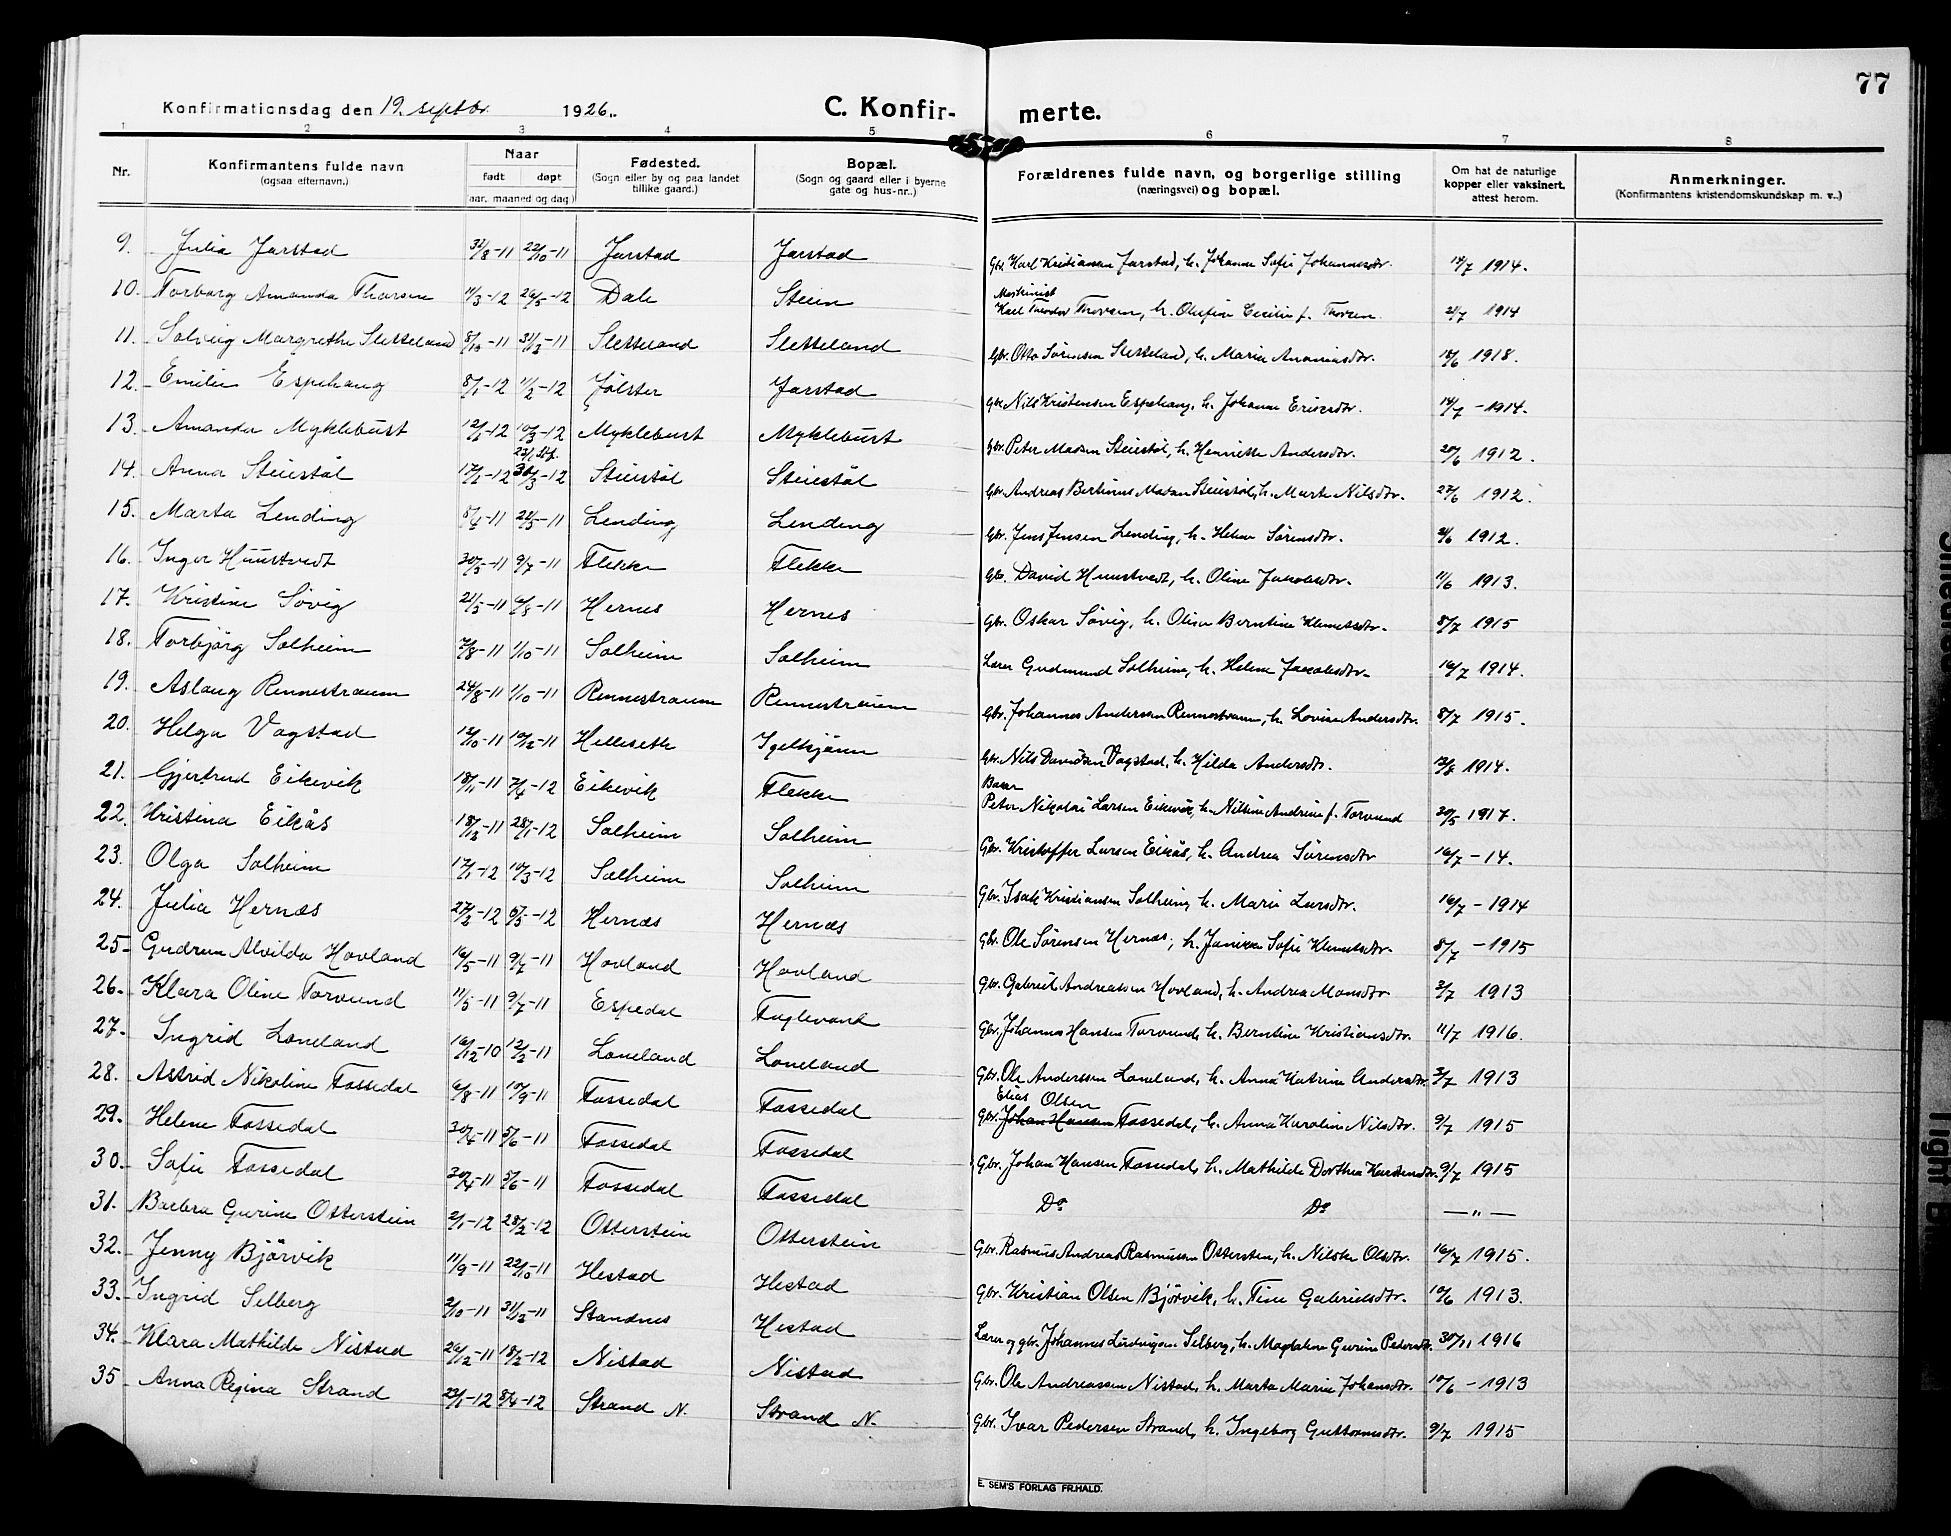 77
Konfirmationsdag den 19. septbr. 1926.
C. Konfir- merte.
1 2 3 4 5 6 7 8
Nr. Konfirmantens fulde navn (ogsaa efternavn.) Naar født døpt aar, maaned og dag) Fødested. (Sogn eller by og paa landet tillike gaard.) Bopæl. (Sogn og gaard eller i byerne gate og hus-nr..) Forældrenes fulde navn, og borgerlige stilling (næringsvei) og bopæl. Om hat de naturlige kopper eller vaksinert, attest herom. Anmerkninger. (Konfirmantens kristendomskundskap m. v..)
9. Julia Jarstad 31/8-11 22/10-11 Jarstad Jarstad Gbr. Karl Kristiansen Jarstad, h. Johanne Sofie Johannesdtr. 14/7 1914.
10. Torborg Amanda Thorsen 11/3-12 26/5-12 Dale Steien Maskinist Karl Teodor Thorsen, h. Olufine Cecilie f. Thorsen. 21/7 1914
11. Solveig Margrethe Sletteland 8/10-11 31/12-11 Sletteland Sletteland Gbr. Otto Sørensen Sletteland, h. Marie Ananiasdtr. 18/6 1918.
12. Emilie Espehaug 8/1-12 11/2-12 Jølster Jarstad Gbr. Nils Kristensen Espehaug, h. Johanne Eriksdtr. 14/7 - 1914.
13. Amanda Myklebust 12/1-12 10/3-12 Myklebust Myklebust Gbr. Peter Madsen Steiestøl, h. Henriette Andersdtr. 20/6 1912.
14. Anna Steiestøl 17/2-12 31/3-12 Steiestøl Steiestøl Gbr. Andreas Bertinus Madsen Steiestøl, h. Marte Nilsdtr. 27/6 1912.
15. Marta Lending 8/4-11 21/5-11 Lending Lending Gbr. Jens Jensen Lending, h. Helene Sørensdtr. 21/6 1912.
16. Inger Huustvedt 30/5-11 9/7-11 Flekke Flekke Gbr. David Huustvedt, h. Oline Jakobsdtr. 11/6 1913.
17. Kristine Søvig 21/5-11 6/8-11 Hernes Hernes Gbr. Oskar Søvig, h. Oline Berntine Klemetsdtr. 8/7 1915
18. Torbjørg Solheim 7/8-11 1/10-11 Solheim Solheim Lærer Gudmund Solheim, h. Helene Jacobsdtr. 16/7 1914.
19. Aslaug Rennestraum 24/8-11 1/10-11 Rennestraum Rennestraum Gbr. Johannes Andersen Rennestraum, h. Lovise Andersdtr. 8/7 1915.
20. Helga Vagstad 12/10-11 10/12-11 Helleseth Igelkjønn Gbr. Nils Davidsen Vagstad, h. Hilda Andersdtr. 12/8 1914.
21. Gjertrud Eikevik 18/11-11 7/4-12 Eikevik Flekke Baker Peter Nikolai Larsen Eikevik, h. Nilsine Andrine f. Torvund 30/5 1917.
22. Kristina Eikås 18/12-11 28/1-12 Solheim Solheim Gbr. Kristoffer Larsen Eikås, h. Andrea Sørensdtr 16/7 - 14.
23. Olga Solheim 17/1-12 10/3-12 Solheim Solheim Gbr. Isak Kristiansen Solheim, h. Marie Larsdtr. 16/7 - 1914
24. Julia Hernæs 27/2-12 5/5-12 Hernæs Hernæs Gbr. Ole Sørensen Hernæs, h. Janikke Sofie Klemetsdtr. 8/7 - 1915
25. Gudrun Alvilda Hovland 16/5-11 9/7-11 Hovland Hovland Gbr. Gabriel Andreassen Hovland, h. Andrea Monsdtr 3/7 1913
26. Klara Oline Torvund 11/5-11 9/7-11 Espedal Fuglevand Gbr. Johannes Hansen Torvund, h. Berntine Kristiansdtr. 11/7 1916.
27. Ingrid Loneland 16/12-10 12/2-11 Loneland Loneland Gbr. Ole Anderssen Loneland, h. Anna Katrine Andersdtr. 3/7 1913
28. Astrid Nikoline Fossedal 6/8-11 10/9-11 Fossedal Fossedal Gbr. Elias Olsen Johan Hansen Fossedal, h. Anna Karoline Nilsdtr. 9/7 1915
29. Helene Fossedal 30/4-11 5/6-11 Fossedal Fossedal Gbr. Johan Hansen Fossedal, h. Mathilde Dorthea Karstensdtr. 9/7 1915
30. Sofie Fossedal 30/4-11 5/6-11 Fossedal Fossedal Do Do — „ —
31. Barbra Gurine Otterstein 2/1-12 28/2-12 Otterstein Otterstein Gbr. Rasmus Andreas Rasmussen Otterstein, h. Nilske Olsdtr. 16/7 1915.
32. Jenny Bjørvik 11/9-11 22/10-11 Hestad Hestad Gbr. Kristian Olsen Bjørvik, h. Tine Gabrielsdtr. 10/6 1913.
33. Ingrid Selberg 2/10-11 31/12-11 Standnes Hestad Lærer og gbr. Johannes Ludvigsen Selberg, h. Magdalene Gurine Pedersdtr. 30/11 1916
34. Klara Mathilde Nistad 26/12-11 18/2-12 Nistad Nistad Gbr. Ole Andreassen Nistad, h. Marta Marie Johansdtr. 10/6 - 1913
35 Anna Regina Strand 23/1-12 8/4-12 Strand N. Strand N. Gbr. Ivar Pedersen Strand, h. Ingeborg Guttormsdtr. 9/7 1915
E. SEM'S FORLAG FR.HALD.